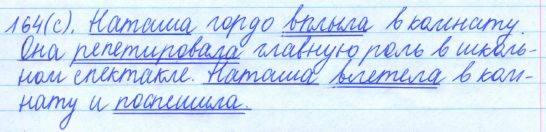 164(с). Наташа гордо вплыла в комнату.
Она репетировала главную роль в школь-
ном спектакле. Наташа влетела в ком-
нату и поспешила.